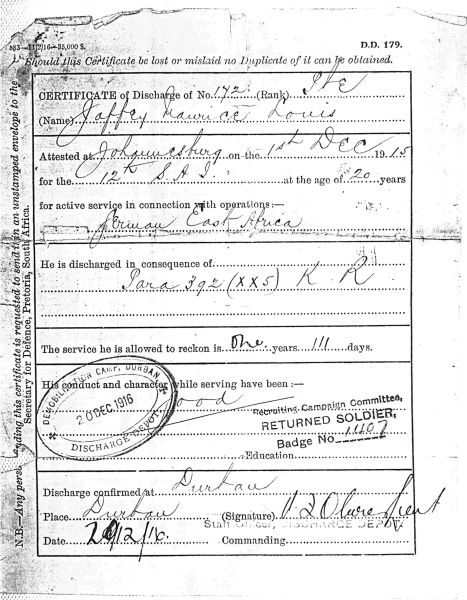 583—11/2/16—35,000 S.
D.D. 179.
Should this Certificate be lost or mislaid no Duplicate of it can be obtained.
CERTIFICATE of Discharge of No. 172 (Rank) Pte
(Name) Jaffey Maurice Louis
Attested at Johannesburg on the 1st Dec 1915
for the 12th S.A.I. at the age of 20 years
for active service in connection with operations:—
German East Africa
He is discharged in consequence of
Para 392 (XX5) K R
The service he is allowed to reckon is One years 111 days.
His conduct and character while serving have been:—
Good
DEMOBILISATION CAMP, DURBAN
20 DEC 1916
DISCHARGE DEPOT.
Recruiting Campaign Committee,
RETURNED SOLDIER,
Badge No 1107
Education
Discharge confirmed at Durban
Place Durban (Signature)
Staff Officer, DISCHARGE DEPOT
Date 20/12/16. Commanding.
N.B.—Any person finding this certificate is requested to send it in an unstamped envelope to the
Secretary for Defence, Pretoria, South Africa.